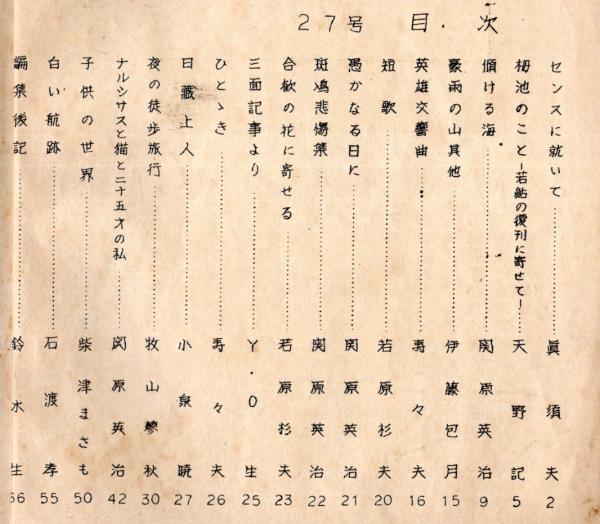 27号 目・次
センスに就いて…………眞須夫 2
栂池のことー若鮎の復刊に寄せてー…………天野記 5
傾ける海…………関原英治 9
豪雨の山其他…………伊藤包月 15
英雄交響曲…………寿々夫 16
短歌…………若原杉夫 20
愚かなる日に…………関原英治 21
斑鳩悲傷集…………関原英治 22
合歓の花に寄せる…………若原杉夫 23
三面記事より…………Y・O生 25
ひとゝき…………寿々夫 26
日蔵上人…………小泉暁 27
夜の徒歩旅行…………牧山夢秋 30
ナルシサスと猫と二十五才の私…………関原英治 42
子供の世界…………柴津まさも 50
白い航跡…………石渡孝 55
編集後記…………鈴木生 66